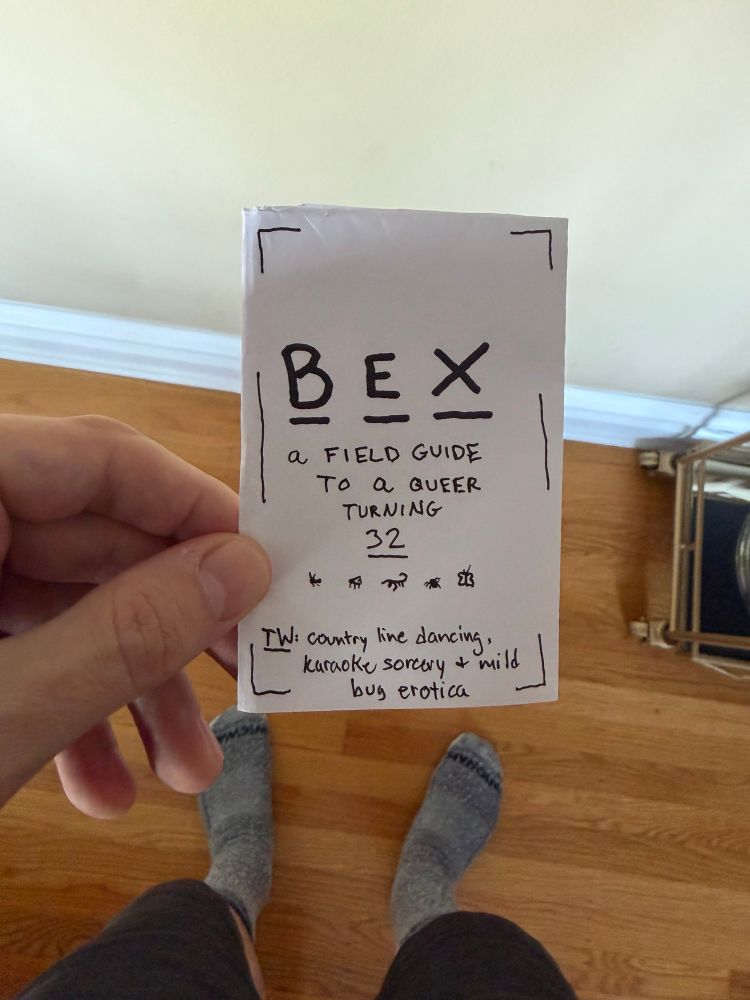 BEX
a FIELD GUIDE
TO a QUEER
TURNING
32
TW: country line dancing,
karaoke sorcery + mild
bug erotica